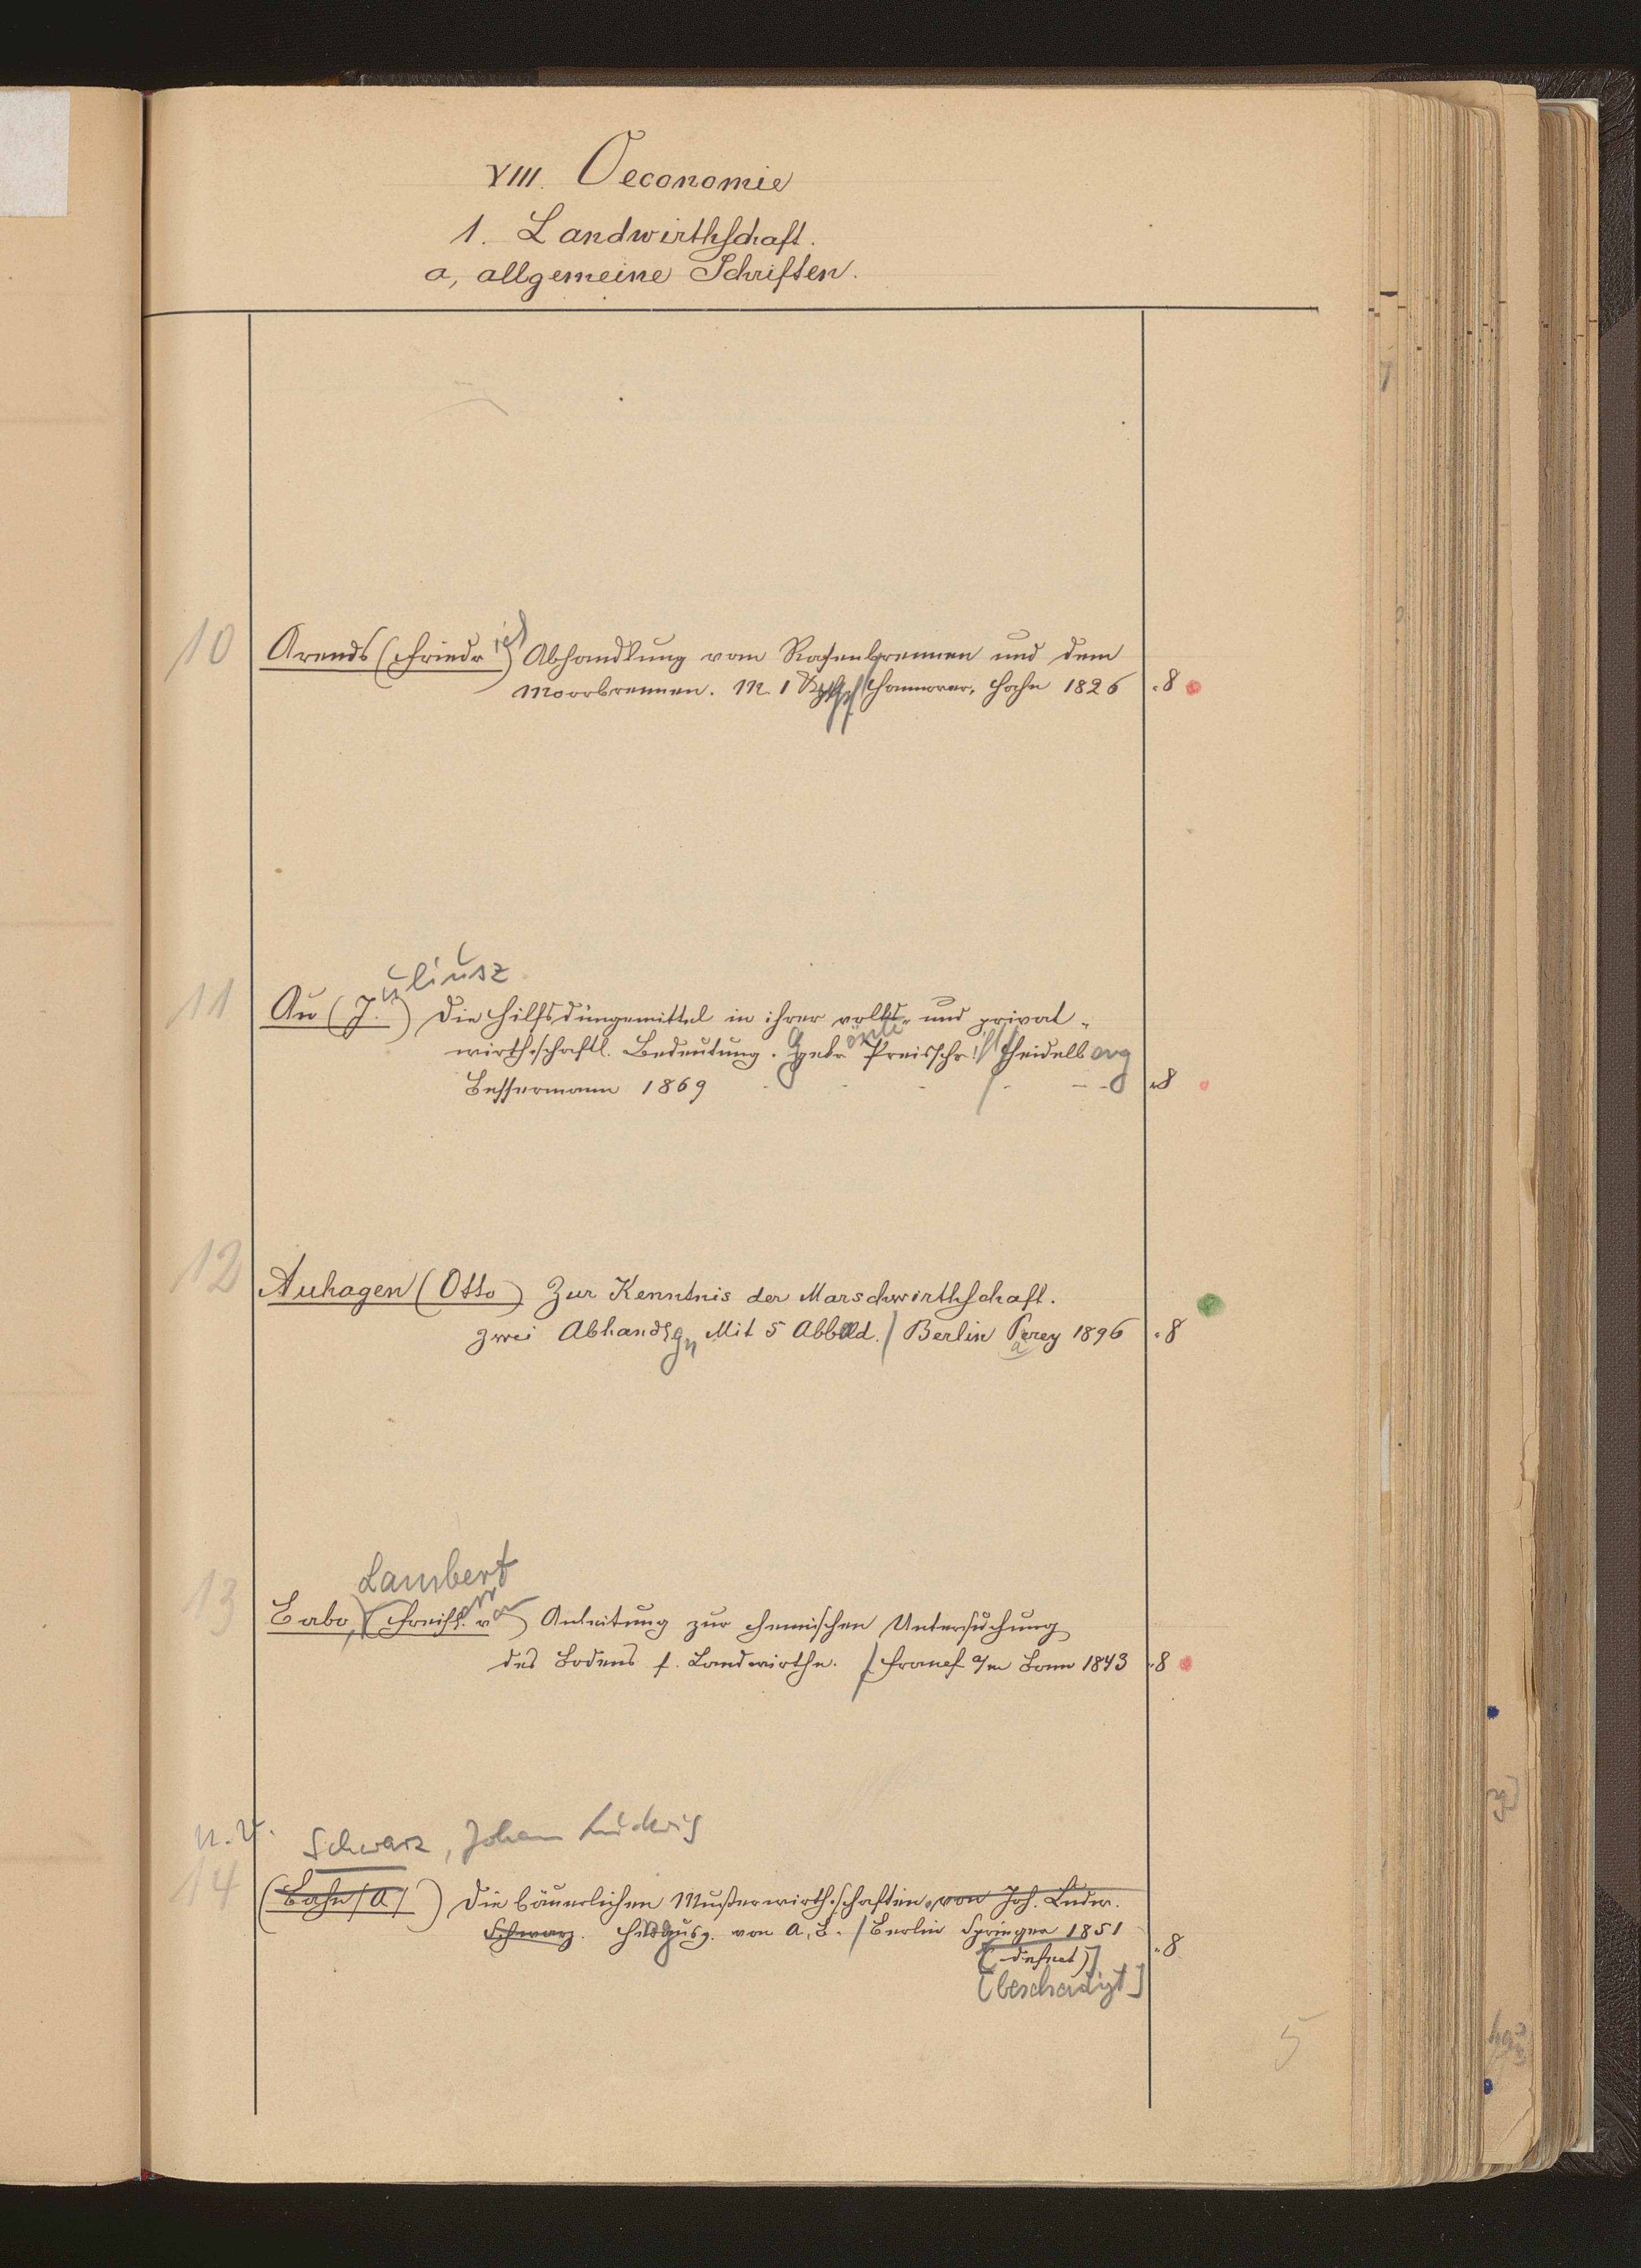 VIII. Oeconomie
1. Landwirthschaft.
a, allgemeine Schriften.
10 Arends (Friedrich) Abhandlung vom Rasenbrennen und dem
Moorbrennen. M. 1 Hannover, Hahn 1826 8
uliusz
11 Au (J.) Die Hilfsdüngemittel in ihrer volks- und privat-
wirthschaftl. Bedeutung. Gekrönte Preisschr. / Heidelberg
Bassermann 1869 8
12 Auhagen (Otto) Zur Kenntnis der Marschwirthschaft.
Zwei Abhandlgn Mit 5 Abbild. / Berlin Parey 1896 8
Lambert
13 Babo, (Freih. von) Anleitung zur chemischen Untersuchung
des Bodens f. Landwirthe. / Francf a/m Bonn 1843 8
n. V. Schwarz, Johann Ludwig
14 (Bahn (A)) Die bäuerlichen Musterwirthschaften, von Joh. Ludw.
Schwarz. von A. B. / Berlin Springer 1851
[(defect)] 8
[beschädigt]
5